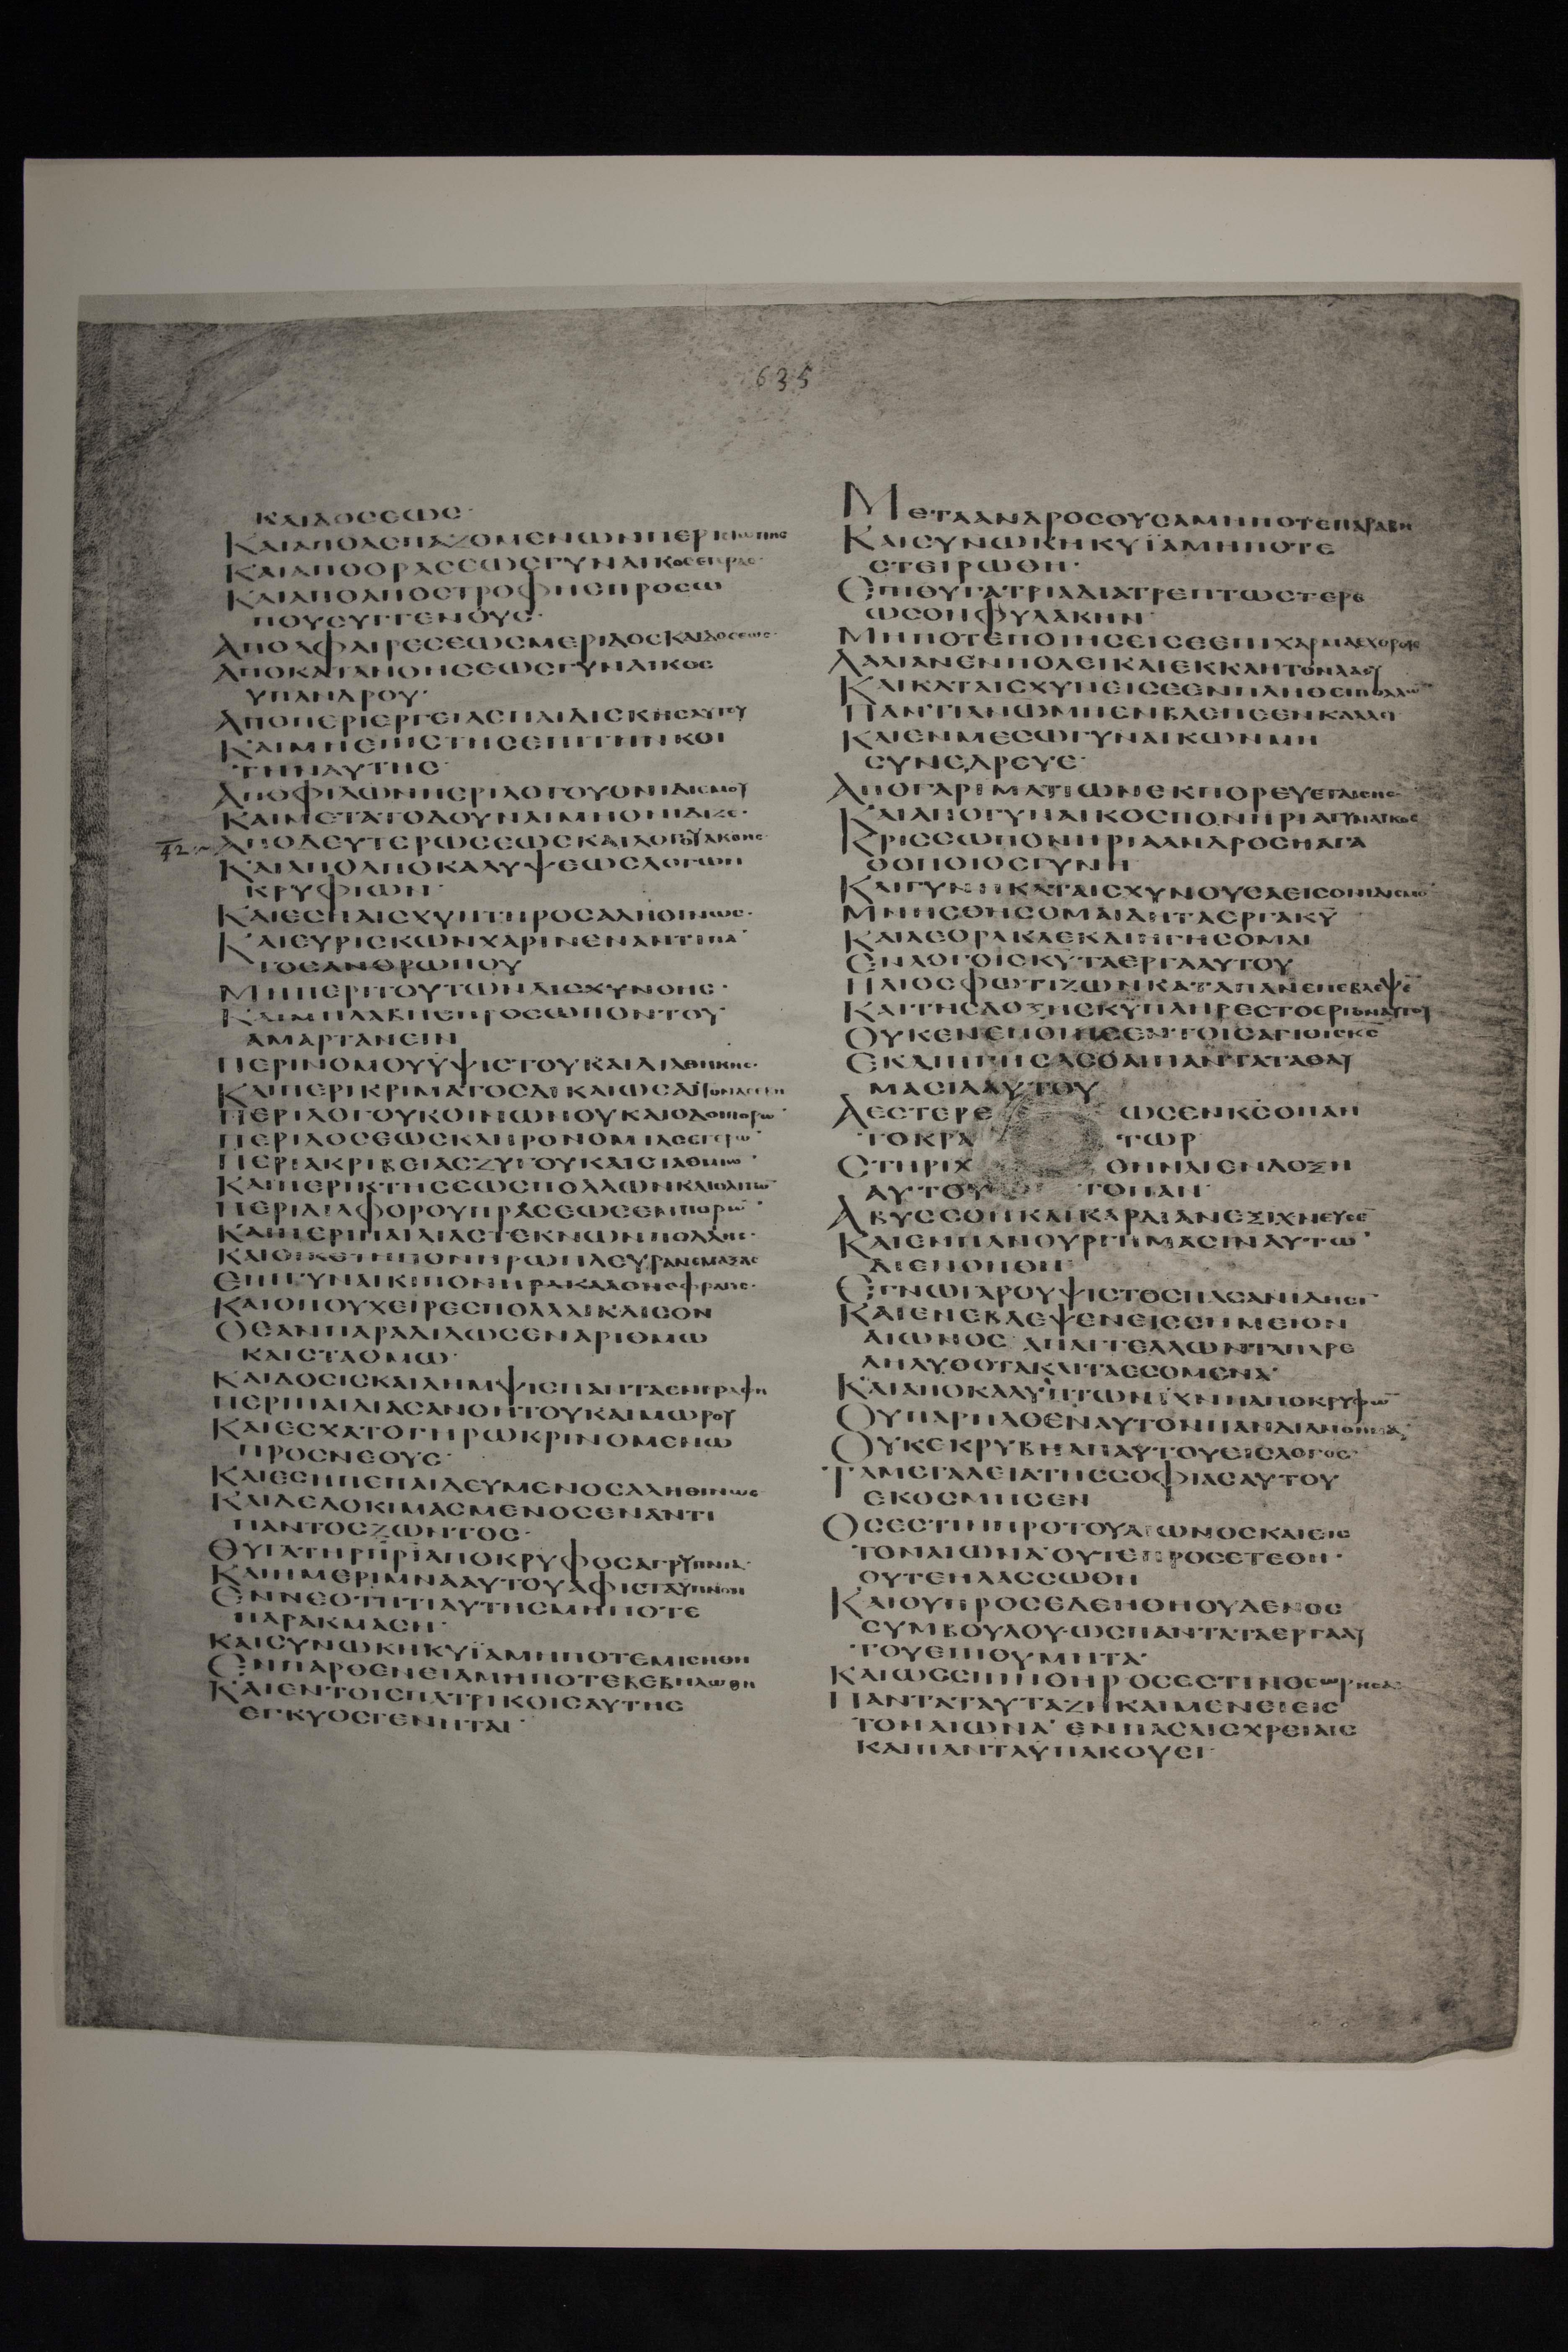 635
ΚΑΙΔΟΣΕΩΣ·
ΚΑΙΑΠΟΑΣΠΑΖΟΜΕΝΩΝΠΕΡΙΣΙΩΠΗΣ
ΚΑΙΑΠΟΟΡΑΣΕΩΣΓΥΝΑΙΚΟΣΕΤΕΡΑΣ·
ΚΑΙΑΠΟΑΠΟΣΤΡΟΦΗΣΠΡΟΣΩ
ΠΟΥΣΥΓΓΕΝΟΥΣ·
ΑΠΟΑΦΑΙΡΕΣΕΩΣΜΕΡΙΔΟΣΚΑΙΔΟΣΕΩΣ·
ΑΠΟΚΑΤΑΝΟΗΣΕΩΣΓΥΝΑΙΚΟΣ
ΥΠΑΝΔΡΟΥ·
ΑΠΟΠΕΡΙΕΡΓΕΙΑΣΠΑΙΔΙΣΚΗΣΑΥΤΟΥ
ΚΑΙΜΗΕΠΙΣΤΗΣΕΠΙΤΗΝΚΟΙ
ΤΗΝΑΥΤΗΣ·
ΑΠΟΦΙΛΩΝΠΕΡΙΛΟΓΟΥΟΝΙΔΙΣΜΟΥ
ΚΑΙΜΕΤΑΤΟΔΟΥΝΑΙΜΗΟΝΙΔΙΖΕ·
ΑΠΟΔΕΥΤΕΡΩΣΕΩΣΚΑΙΛΟΓΟΥΑΚΟΗΣ·
ΚΑΙΑΠΟΑΠΟΚΑΛΥΨΕΩΣΛΟΓΩΝ
ΚΡΥΦΙΩΝ·
ΚΑΙΕΣΗΑΙΣΧΥΝΤΗΡΟΣΑΛΗΘΙΝΩΣ·
ΚΑΙΕΥΡΙΣΚΩΝΧΑΡΙΝΕΝΑΝΤΙΠΑ
ΤΟΣΑΝΘΡΩΠΟΥ
ΜΗΠΕΡΙΤΟΥΤΩΝΑΙΣΧΥΝΘΗΣ·
ΚΑΙΜΗΛΑΒΗΣΠΡΟΣΩΠΟΝΤΟΥ
ΑΜΑΡΤΑΝΕΙΝ
ΠΕΡΙΝΟΜΟΥΥΨΙΣΤΟΥΚΑΙΔΙΑΘΗΚΗΣ·
ΠΕΡΙΛΟΓΟΥΚΟΙΝΩΝΟΥΚΑΙΟΔΟΙΠΟΡΩ
ΠΕΡΙΑΚΡΙΒΕΙΑΣΖΥΓΟΥΚΑΙΣΤΑΘΜΙΩ
ΚΑΙΠΕΡΙΚΤΗΣΕΩΣΠΟΛΛΩΝΚΑΙΟΛΙΓΩ
ΠΕΡΙΔΙΑΦΟΡΟΥΠΡΑΣΕΩΣΕΜΠΟΡΩ
ΚΑΙΠΕΡΙΠΑΙΔΙΑΣΤΕΚΝΩΝΠΟΛΛΗΣ·
ΚΑΙΟΙΚΕΤΗΠΟΝΗΡΩΠΛΕΥΡΑΝΑΙΜΑΞΑΙ
ΕΠΙΓΥΝΑΙΚΙΠΟΝΗΡΑΚΑΛΟΝΣΦΡΑΓΙΣ·
ΚΑΙΟΠΟΥΧΕΙΡΕΣΠΟΛΛΑΙΚΛΙΣΟΝ
ΟΕΑΝΠΑΡΑΔΙΔΩΣΕΝΑΡΙΘΜΩ
ΚΑΙΣΤΑΘΜΩ·
ΚΑΙΔΟΣΙΣΚΑΙΛΗΜΨΙΣΠΑΝΤΑΕΝΓΡΑΦΗ
ΠΕΡΙΠΑΙΔΙΑΣΑΝΟΗΤΟΥΚΑΙΜΩΡΟΥ
ΚΑΙΕΣΧΑΤΟΓΗΡΩΚΡΙΝΟΜΕΝΩ
ΠΡΟΣΝΕΟΥΣ·
ΚΑΙΕΣΗΠΕΠΑΙΔΕΥΜΕΝΟΣΑΛΗΘΙΝΩΣ
ΚΑΙΔΕΔΟΚΙΜΑΣΜΕΝΟΣΕΝΑΝΤΙ
ΠΑΝΤΟΣΖΩΝΤΟΣ·
ΘΥΓΑΤΗΡΠΡΙΑΠΟΚΡΥΦΟΣΑΓΡΥΠΝΙΑ·
ΚΑΙΗΜΕΡΙΜΝΑΑΥΤΟΥΑΦΙΣΤΑΥΠΝΟΝ
ΕΝΝΕΟΤΗΤΙΑΥΤΗΣΜΗΠΟΤΕ
ΠΑΡΑΚΜΑΣΗ·
ΚΑΙΣΥΝΩΚΗΚΥΪΑΜΗΠΟΤΕΜΙΣΗΘΗ
ΕΝΠΑΡΘΕΝΕΙΑΜΗΠΟΤΕΒΕΒΗΛΩΘΗ
ΚΑΙΕΝΤΟΙΣΠΑΤΡΙΚΟΙΣΑΥΤΗΣ
ΕΓΚΥΟΣΓΕΝΗΤΑΙ·
ΜΕΤΑΑΝΔΡΟΣΟΥΣΑΜΗΠΟΤΕΠΑΡΑΒΗ
ΚΑΙΣΥΝΩΚΗΚΥΪΑΜΗΠΟΤΕ
ΣΤΕΙΡΩΘΗ·
ΕΠΙΘΥΓΑΤΡΙΑΔΙΑΤΡΕΠΤΩΣΤΕΡΕ
ΩΣΟΝΦΥΛΑΚΗΝ·
ΜΗΠΟΤΕΠΟΙΗΣΕΙΣΕΕΠΙΧΑΡΜΑΕΧΘΡΟΙΣ
ΛΑΛΙΑΝΕΝΠΟΛΕΙΚΑΙΕΚΚΛΗΤΟΝΛΑΟΥ
ΚΑΙΚΑΤΑΙΣΧΥΝΕΙΣΕΕΝΠΛΗΘΕΙΠΟΛΛΩ
ΠΑΝΤΙΑΝΩΜΗΕΝΒΛΕΠΕΕΝΚΑΛΛΕΙ
ΚΑΙΕΝΜΕΣΩΓΥΝΑΙΚΩΝΜΗ
ΣΥΝΕΔΡΕΥΕ·
ΑΠΟΓΑΡΙΜΑΤΙΩΝΕΚΠΟΡΕΥΕΤΑΙΣΗΣ
ΚΑΙΑΠΟΓΥΝΑΙΚΟΣΠΟΝΗΡΙΑΓΥΝΑΙΚΟΣ
ΚΡΙΣΣΩΠΟΝΗΡΙΑΑΝΔΡΟΣΗΑΓΑ
ΘΟΠΟΙΟΣΓΥΝΗ
ΚΑΙΓΥΝΗΚΑΤΑΙΣΧΥΝΟΥΣΑΕΙΣΟΝΙΔΙΣΜΟ
ΜΝΗΣΘΗΣΟΜΑΙΔΗΤΑΕΡΓΑΚΥ
ΚΑΙΑΕΟΡΑΚΑΕΚΔΙΗΓΗΣΟΜΑΙ
ΕΝΛΟΓΟΙΣΚΥΤΑΕΡΓΑΑΥΤΟΥ
ΗΛΙΟΣΦΩΤΙΖΩΝΚΑΤΑΠΑΝΕΠΕΒΛΕΨΕ
ΚΑΙΤΗΣΔΟΞΗΣΚΥΠΛΗΡΕΣΤΟΕΡΓΟΝΑΥΤΟΥ
ΟΥΚΕΝΕΠΟΙΗΣΕΝΤΟΙΣΑΓΙΟΙΣΚΣ
ΕΚΔΙΗΓΗΣΑΣΘΑΙΠΑΝΤΑΤΑΘΑΥ
ΜΑΣΙΑΑΥΤΟΥ
ΑΕΣΤΕΡΕ ΩΣΕΝΚΣΟΠΑΝ
ΤΟΚΡΑ ΤΩΡ
ΣΤΗΡΙΧ ΘΗΝΑΙΕΝΔΟΞΗ
ΑΥΤΟΥ ΤΟΠΑΝ·
ΑΒΥΣΣΟΝΚΑΙΚΑΡΔΙΑΝΕΞΙΧΝΕΥΣΕ
ΚΑΙΕΝΠΑΝΟΥΡΓΗΜΑΣΙΝΑΥΤΩ
ΔΙΕΝΟΗΘΗ·
ΕΓΝΩΓΑΡΟΥΨΙΣΤΟΣΠΑΣΑΝ
ΚΑΙΕΝΕΒΛΕΨΕΝΕΙΣΣΗΜΕΙΟΝ
ΑΙΩΝΟΣ ΑΠΑΓΓΕΛΛΩΝΤΑΠΑΡΕ
ΛΗΛΥΘΟΤΑΚΑΙΤΑΕΣΟΜΕΝΑ·
ΚΑΙΑΠΟΚΑΛΥΠΤΩΝΙΧΝΗΑΠΟΚΡΥΦΩ
ΟΥΠΑΡΗΛΘΕΝΑΥΤΟΝΠΑΝΔΙΑΝΟΗΜΑ
ΟΥΚΕΚΡΥΒΗΑΠΑΥΤΟΥΕΙΣΛΟΓΟΣ·
ΤΑΜΕΓΑΛΕΙΑΤΗΣΣΟΦΙΑΣΑΥΤΟΥ
ΕΚΟΣΜΗΣΕΝ
ΟΣΕΣΤΙΝΠΡΟΤΟΥΑΙΩΝΟΣΚΑΙΕΙΣ
ΤΟΝΑΙΩΝΑ·ΟΥΤΕΠΡΟΣΕΤΕΘΗ·
ΟΥΤΕΗΛΑΣΣΩΘΗ
ΚΑΙΟΥΠΡΟΣΕΔΕΗΘΗΟΥΔΕΝΟΣ
ΣΥΜΒΟΥΛΟΥ·ΩΣΠΑΝΤΑΤΑΕΡΓΑΑΥ
ΤΟΥΕΠΙΘΥΜΗΤΑ·
ΚΑΙΩΣΣΠΙΝΘΗΡΟΣΕΣΤΙΝΘΕΩΡΗΣΑΙ
ΠΑΝΤΑΤΑΥΤΑΖΗΚΑΙΜΕΝΕΙΕΙΣ
ΤΟΝΑΙΩΝΑ· ΕΝΠΑΣΑΙΣΧΡΕΙΑΙΣ
ΚΑΙΠΑΝΤΑΥΠΑΚΟΥΕΙ·